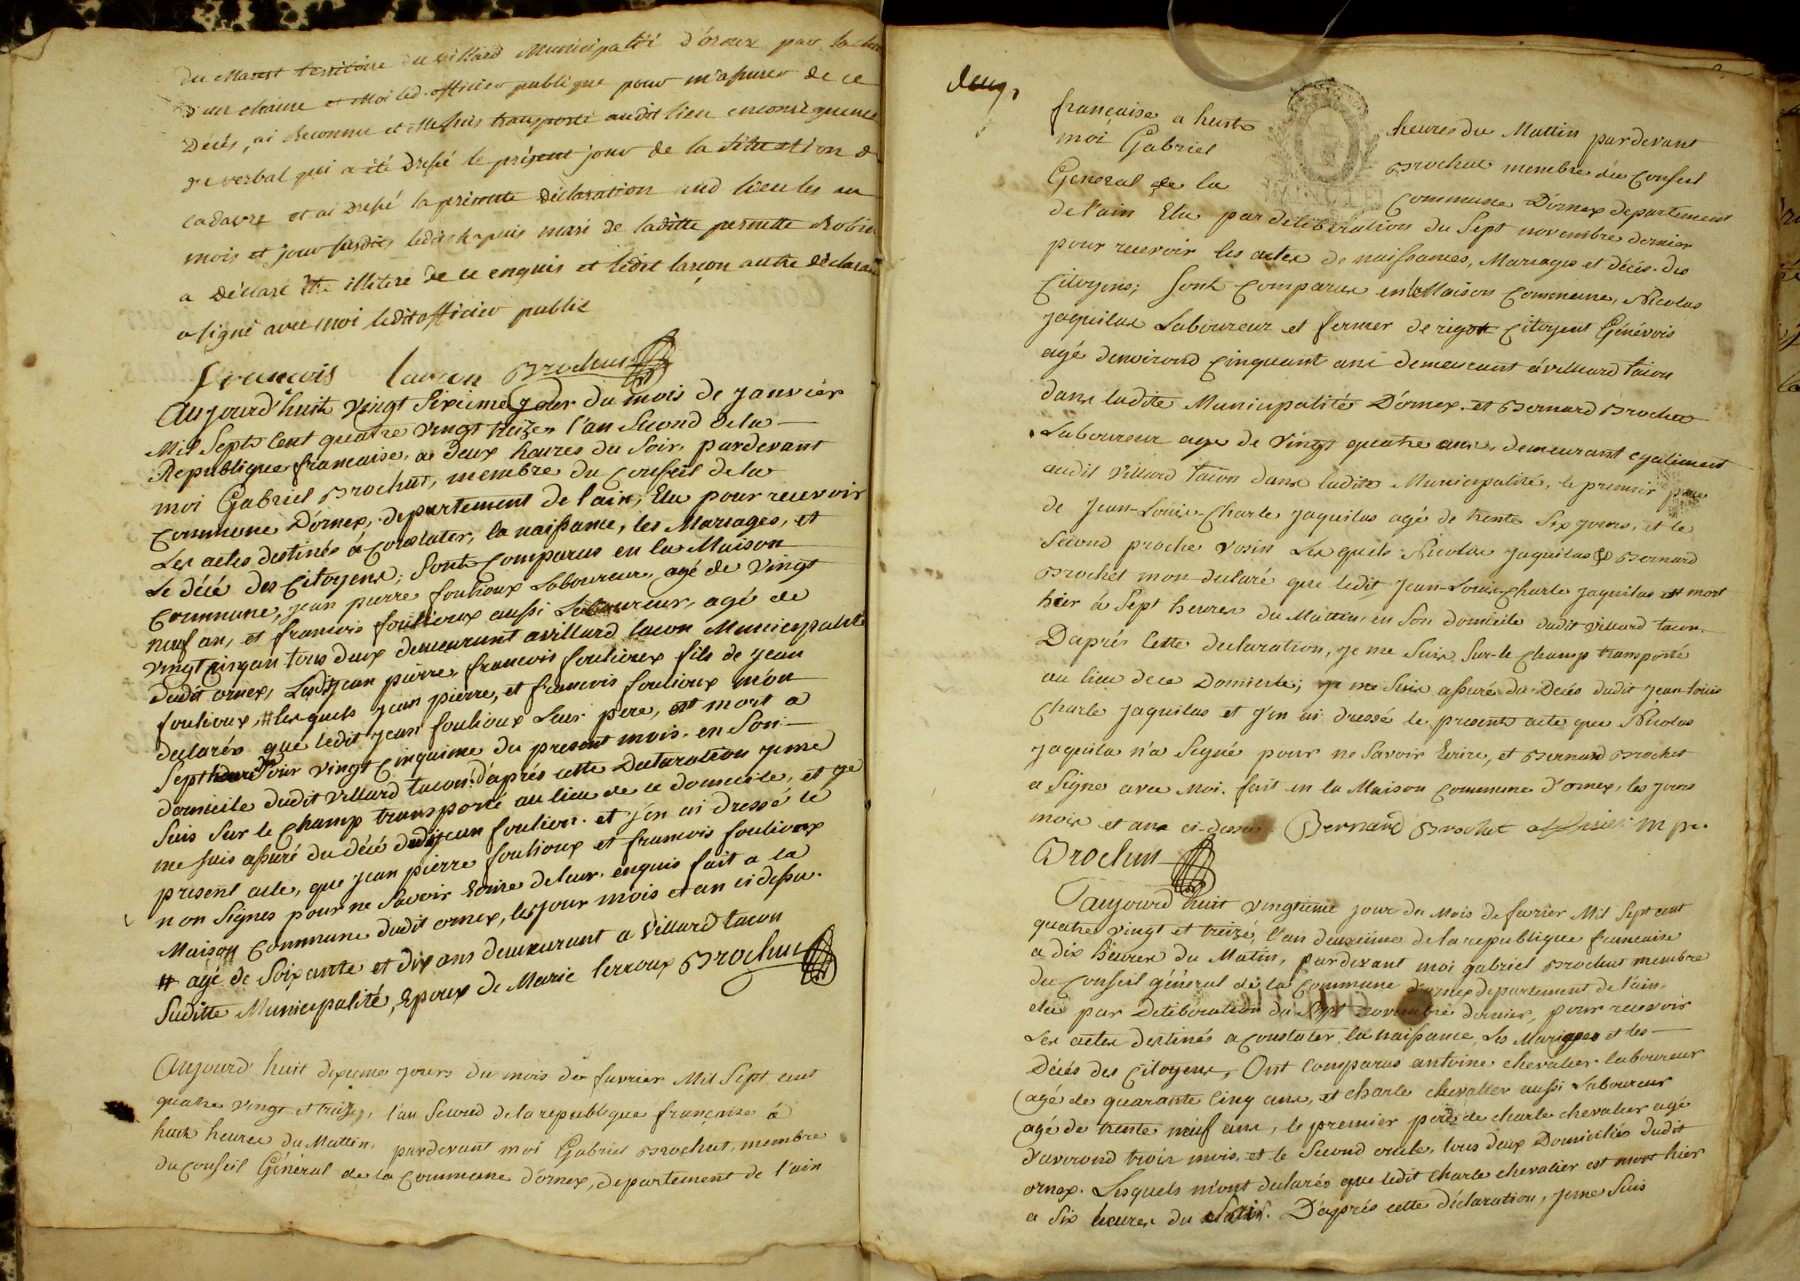 du Marest territoire du villard Municipalité d'ornex par la
d'un chaine et Moi led. officier publique pour m'assurer de ce
Décés, ai Reconnu et Me suis transporté audit lieu enconsequence
verbal qui a été dressé le présent jour de la situation d
cadavre et ai dressé la presente déclaration aud lieu les an
mois et jour susdits ledit mari de laditte pernette Robin
a déclaré être illitéré de ce enquis et ledit lançon autre déclarant
a signé avec moi ledit officier public
françois lançon Brochut
Aujourd'huit Vingt Sixieme jour du mois de janvier
Mil Septs cent quatre vingt treizes l'an Second dela
Republique francaise, a deux heures du Soir, pardevant
moi Gabriel Brochut, membre du Conseil dela
Commune D'ornex, departement de l'ain, Elu pour recevoir
Les actes destinés á Constater, la naissance, les Mariages, et
Le décé des Citoyens; Sont Comparus en la Maison
Commune, jean pierre foulioux Laboureur, agé de Vingt
neuf an, et francois foulioux aussi Laboureur, agé de
Vingt cinq an tous deux demeurant avillard tacon Municipalité
dudit ornex, Ledit jean pierre, francois foulioux fils de jean
foulioux # lesquels jean pierre, et francois foulioux m'on
declarés que ledit jean foulioux Leur pere, est mort a
Sept heure du Soir Vingt Cinquime du present mois en Son
domicile dudit villard tacon: d'aprés cette Declaration je me
Suis Sur le Champ transporté au lieu de ce domicile, et je
me suis assuré du décé dudit jean foulioux. et j'en ai dressé le
present acte, que jean pierre foulioux et francois foulioux
non Signes pour ne Savoir Ecrire de leur enquis fait a la
Maison Commune dudit ornex, les jour mois et an ci dessu.
# agé de Soixante et dix ans demeurant a Villard tacon
Suditte Municipalité, Epoux de Marie lerroux Brochut
Aujourd'huit dixieme jours du mois de fevrier Mil Sept cent
quatre vingt et treize, l'an Second de la republique française á
huit heures du Mattin, pardevant moi Gabriel Brochut, membre
du Conseil Général de la Commune d'ornex, departement de l'ain
deux,
française a huit heures du Mattin pardevant
moi Gabriel Brochut membre du Conseil
General de la Commune D'ornex departement
de l'ain Elu par deliberation du Sept novembre dernier
pour recevoir les actes de naissances, Mariages et décés des
Citoyens; Sont Comparus en la Maison Commune, Nicolas
jaquilas Laboureur et fermier de rigot Citoyent Génévois
agé denvirond Cinquant ans demeurant á villard tacon
dans ladite Municipalité D'ornex. et Bernard Brochet
Laboureur age de Vingt quatre ans, demeurant egaliment
audit Villard Tacon dans ladite Municipalité, le premier pere
de Jean-Louis-Charle jaquilas agé de trente Six jours, et le
Second proche Voisin Les quels Nicolas jaquilas & Bernard
Brochet mon declaré que ledit Jean-Louis-Charle jaquilas est mort
hier á Sept heures du Mattin, en Son domicile dudit Villard tacon.
Daprés Cette declaration, je me Suis Sur-le Champ transporté
au lieu de ce Domicile; je me Suis assuré du Décés dudit jean louis
Charle jaquilas et j'en ai dressé le present acte que Nicolas
jaquila n'a Signé pour ne Savoir Ecrire, et Bernard Brochet
a Signe avec Moi. fait en la Maison Commune d'ornex, les jours
mois et an ci-dessus Bernard Brochet
Brochut
Aujourd'huit Vingtieme jour du Mois de fevrier Mil Sept cent
quatre Vingt et treize, l'an deuxième de la republique francaise
a dix heures du Matin, pardevant moi gabriel Brochut membre
du Conseil général de la Commune d'ornex departement de l'ain.
elu par Deliberation du Sept novembre dernier, pour recevoir
Les actes destinés a Constater la naissance, Les Mariages et les
Décés des Citoyens, Ont Comparus antoine chevalier laboureur
agé de quarante Cinq ans, et charle chevallier aussi Laboureur
agé de trente neuf ans, le premier pere de charle chevalier agé
d'environd trois mois et le Second oncle, tous deux Domiciliés dudit
ornex. Lesquels m'ont declarés que ledit charle chevalier est mort hier
a Six heures du Soir. D'aprés cette déclaration, je me Suis